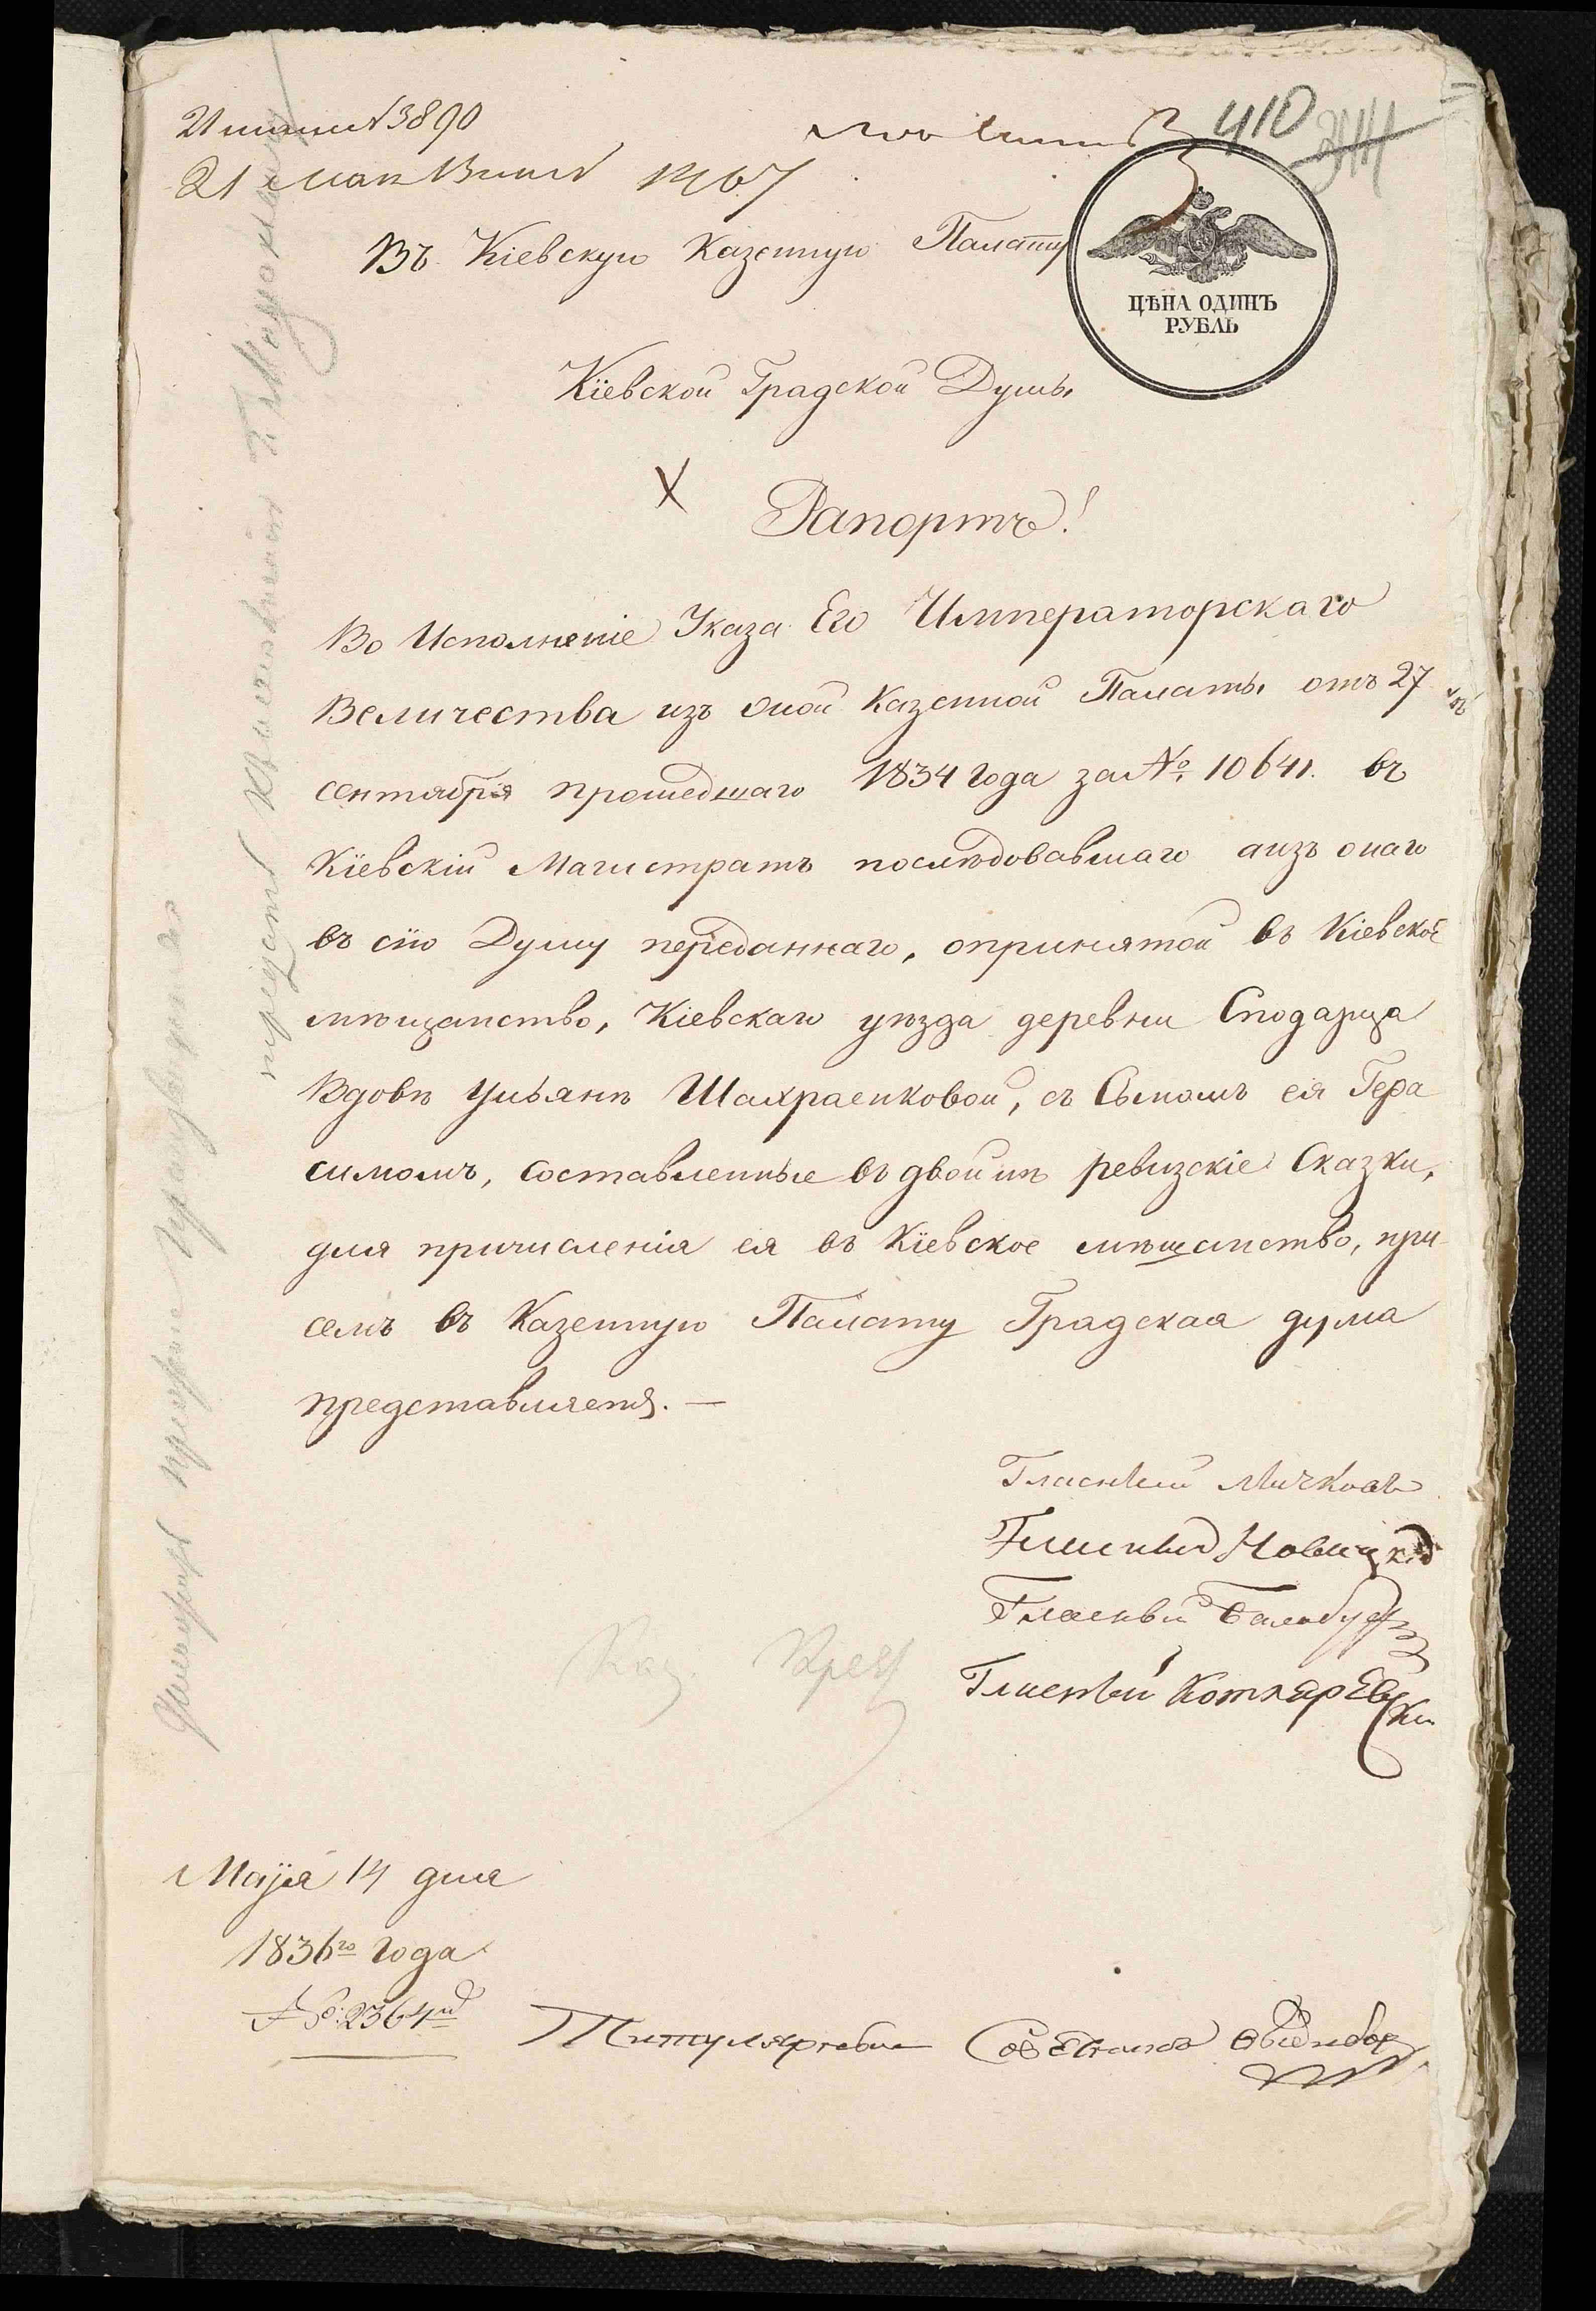 № 3890
410
21 мая 1836
Въ Кіевскую Казенную Палату
ЦѢНА ОДИНЪ
РУБЛЬ
Кіевской Градской Думы
Рапортъ!
Во Исполненіе Указа Его Императорскаго
Величества изъ оной Казенной Палаты отъ 27
сентября прошедшаго 1834 года за № 10641. въ
Кіевскій Магистратъ послѣдовавшаго аизъ онаго
въ сію Думу переданнаго, опринятой въ Кіевское
мѣщанство, Кіевскаго уѣзда деревни
Вдовѣ Ульянѣ Шахраенковой, съ Сыномъ ея Гера
симомъ, составленные въ двойнѣ ревизскіе Сказки,
для причисленія ея въ Кіевское мѣщанство, при
семъ въ Казенную Палату Градская дума
представляетъ. —
Гласный Личковъ
Гласный Новицкій
Гласный Балабуха
Гласный Котляревски
Маія 14 дня
1836го года
№: 2364й
Титулярный Советникъ